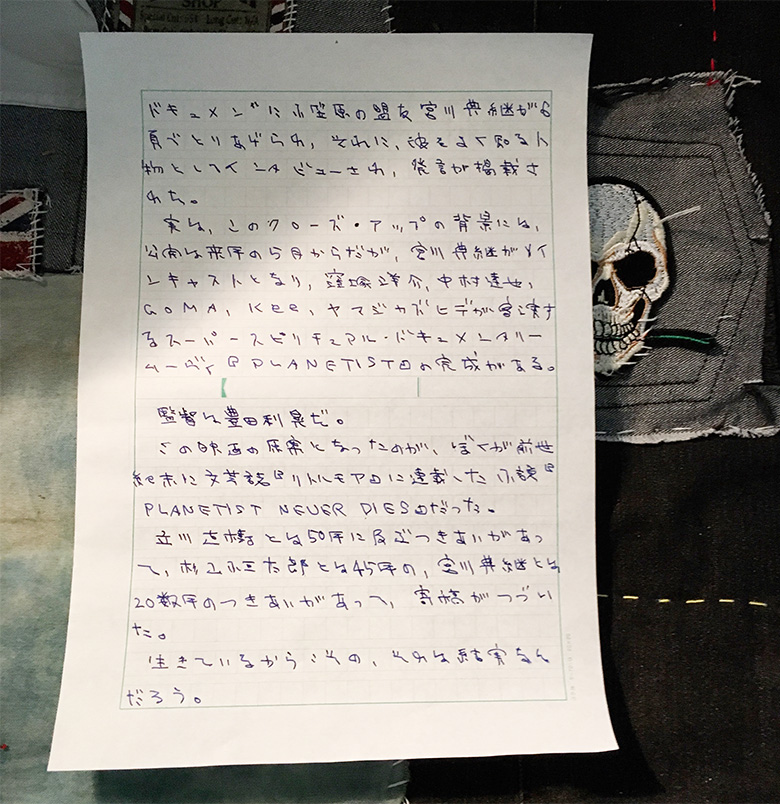 SHOP
ドキュメントに小笠原の盟友宮川典継が6
頁でとりあげられ、それに、彼をよく知る人
物としてインタビューされ、発言が掲載さ
れた。
実は、このクローズ・アップの背景には、
公開は来年の5月からだが、宮川典継がメイ
ンキャストとなり、窪塚洋介、中村達也、
GOMA、KEE、ヤマジカズヒデが客演す
るスーパースピリチュアル・ドキュメンタリー
ムーヴィ『PLANETIST』の完成がある。
監督は豊田利晃だ。
この映画の原案となったのが、ぼくが前世
紀末に文芸誌『リトルモア』に連載した小説『
PLANETIST NEVER DIES』だった。
立川直樹とは50年に及ぶつきあいがあっ
て、杉山小三太郎とは45年の、宮川典継とは
20数年のつきあいがあって、寄稿がつづい
た。
生きているからこその、それは結実なん
だろう。